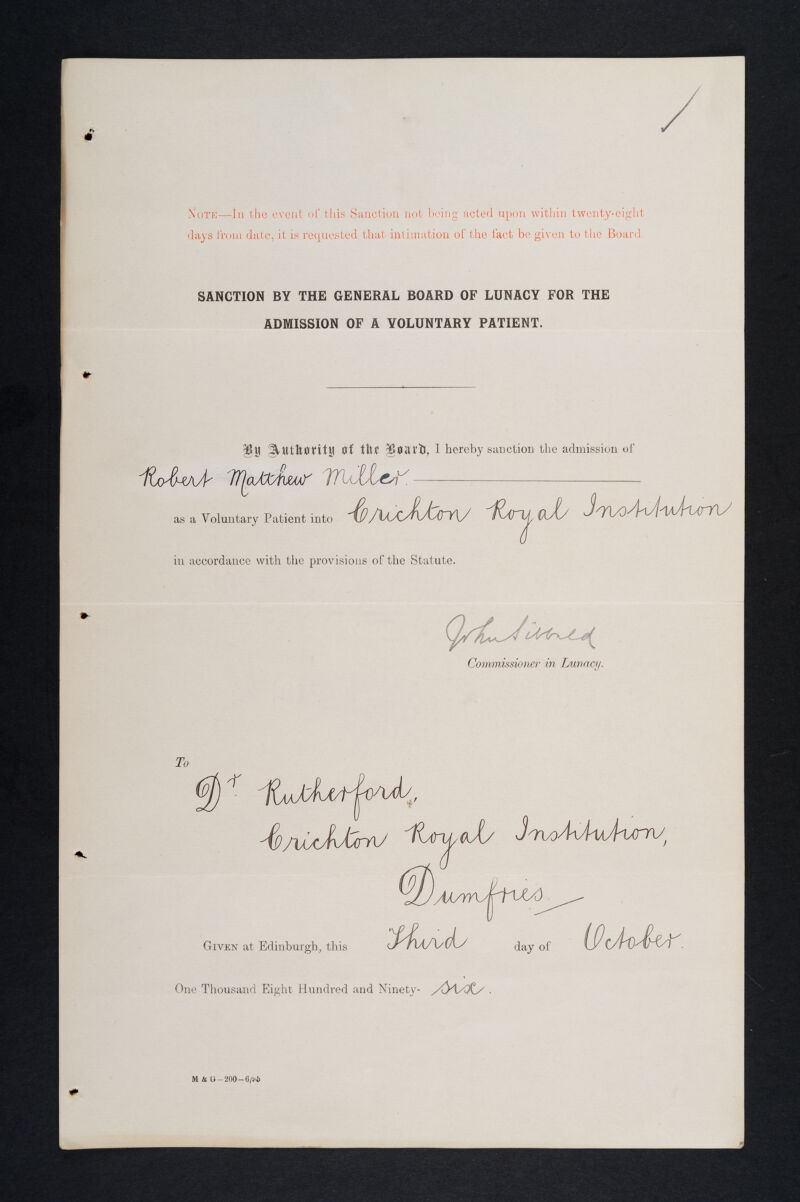 NOTE—In the event of this Sanction not being acted upon within twenty-eight
days from date, it is requested that intimation of the fact be given to the Board.
SANCTION BY THE GENERAL BOARD OF LUNACY FOR THE
ADMISSION OF A VOLUNTARY PATIENT.
By Authority of the Board, I hereby sanction the admission of
Robert Matthew Miller.
as a Voluntary Patient into Crichton Royal Institution
in accordance with the provisions of the Statute.
John Sibbald
Commissioner in Lunacy.
To
Dr. Rutherford,
Crichton Royal Institution,
Dumfries
GIVEN at Edinburgh, this Third day of October.
One Thousand Eight Hundred and Ninety- six.
M & G—200—6/95